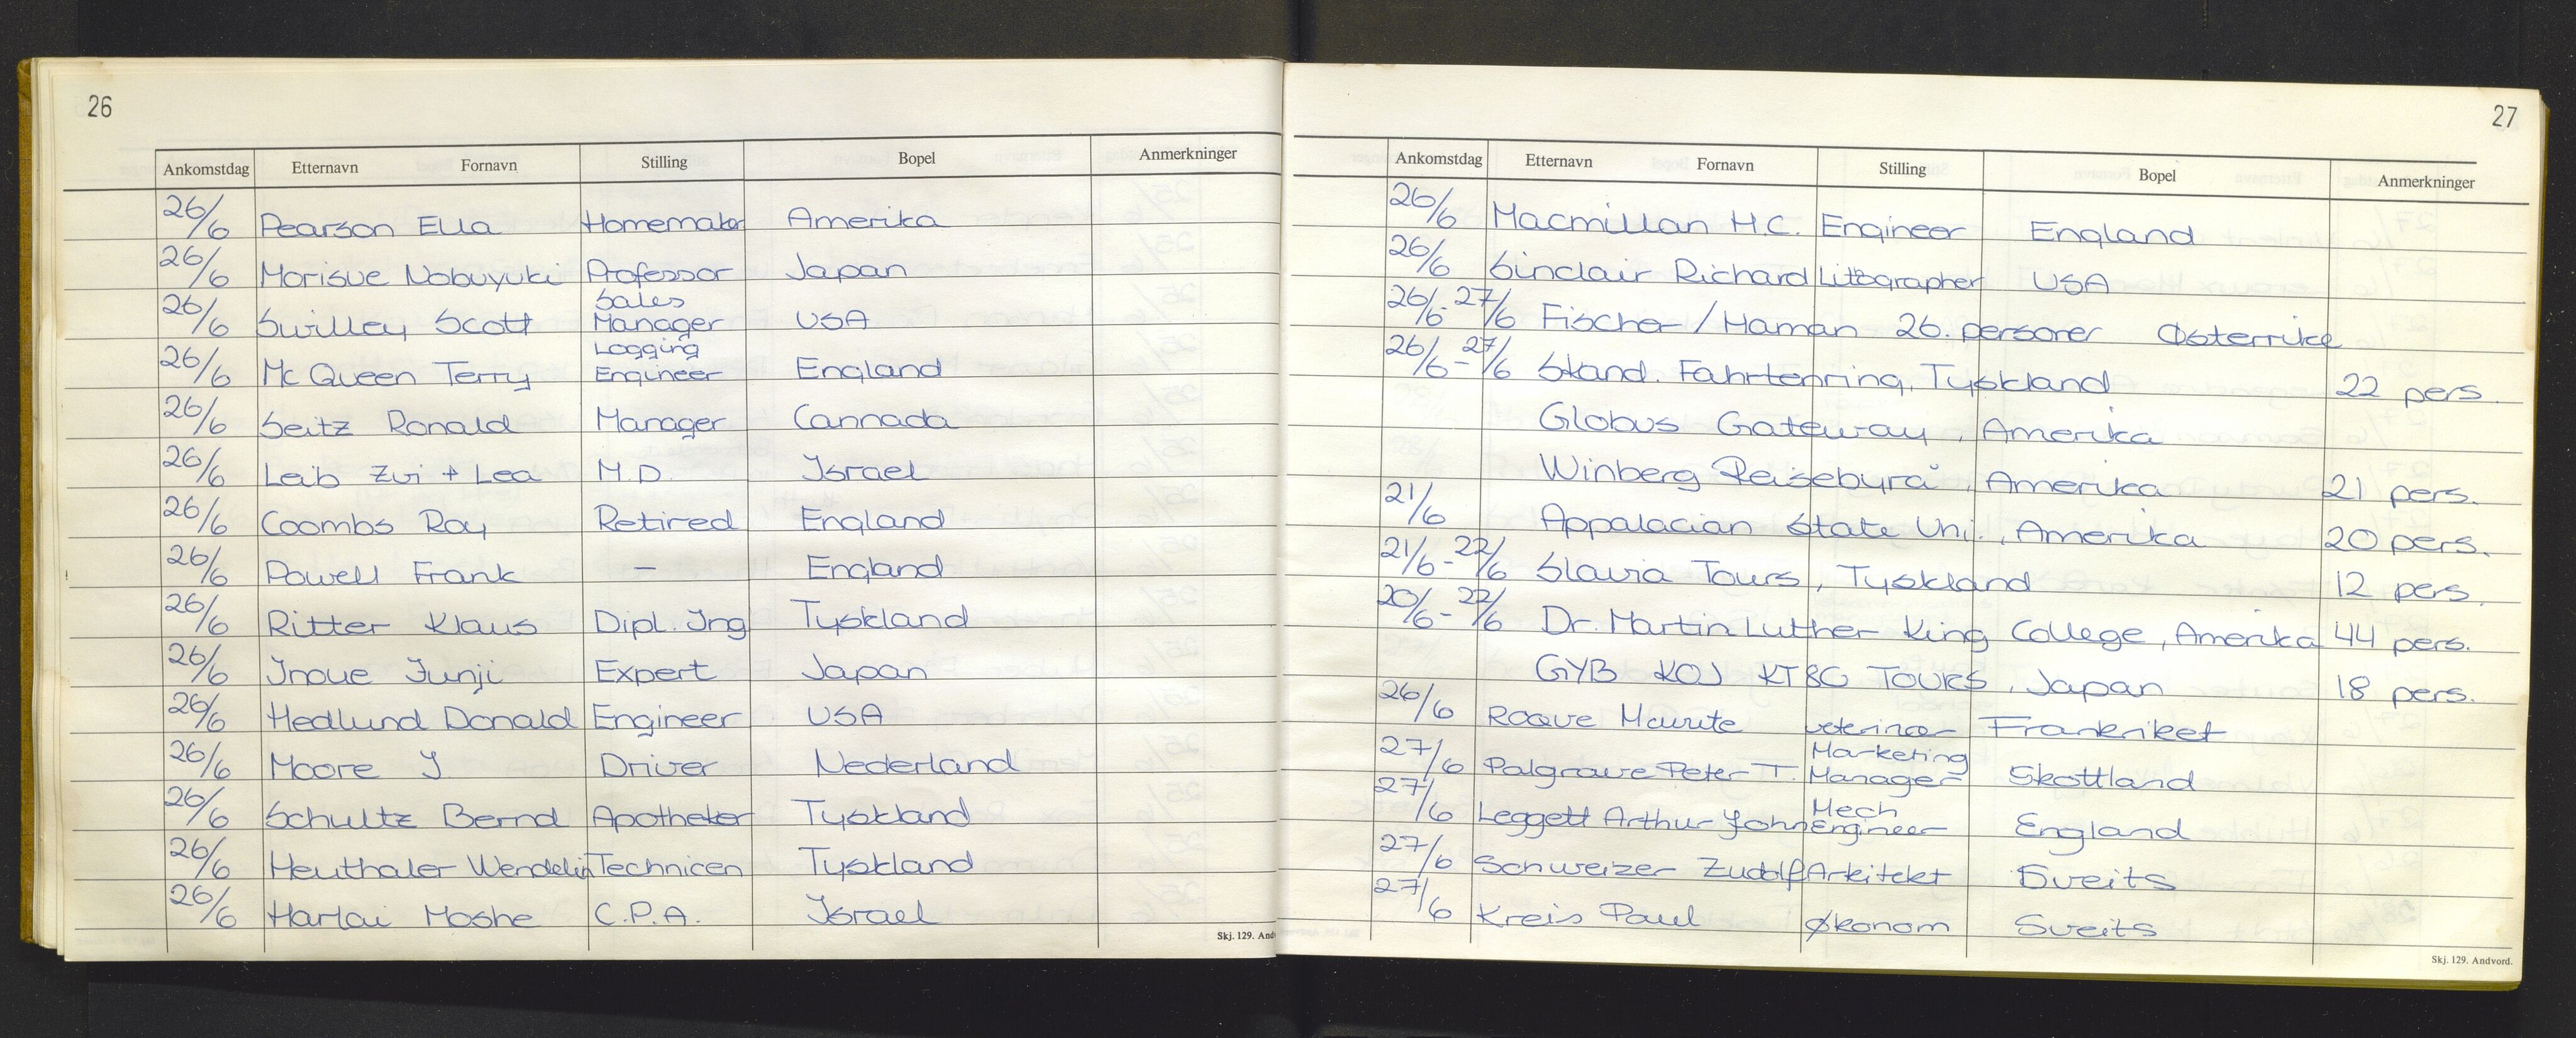 26
Ankomstdag Etternavn Fornavn Stilling Bopel Anmerkninger
26/6 Pearson Ella Homemaker Amerika
26/6 Morisue Nobuyuki Professor Japan
26/6 Swilley Scott Sales Manager USA
26/6 Mc Queen Terry Logging Engineer England
26/6 Seitz Ronald Manager Cannada
26/6 Leib Zvi + Lea M.D. Israel
26/6 Coombs Roy Retired England
26/6 Powell Frank — England
26/6 Ritter Klaus Dipl. Ing Tyskland
26/6 Inoue Junji Expert Japan
26/6 Hedlund Donald Engineer USA
26/6 Moore J. Driver Nederland
26/6 Schultz Bernd Apotheker Tyskland
26/6 Heuthaler Wendelin Technicen Tyskland
26/6 Harlai Moshe C.P.A. Israel
Skj. 129. And
27
Ankomstdag Etternavn Fornavn Stilling Bopel Anmerkninger
26/6 Macmillan H.C. Engineer England
26/6 Sinclair Richard Litographer USA
26/6-27/6 Fischer / Haman 26. personer Østerrike
26/6-27/6 Skand. Fahrtenring, Tyskland 22 pers.
Globus Gateway, Amerika
Winberg Reisebyrå, Amerika 21 pers.
21/6 Appalacian State Uni., Amerika 20 pers.
21/6-22/6 Slavia Tours, Tyskland 12 pers.
20/6-22/6 Dr. Martin Luther King College, Amerika 44 pers.
GYB KOJ TOURS, Japan 18 pers.
26/6 Roque veterinær Frankriket
27/6 Palgrave Peter T. Marketing Manager Skottland
27/6 Leggett Arthur John Mech Engineer England
27/6 Schweizer Zudolf Arkitekt Sveits
27/6 Kreis Paul Økonom Sveits
Skj. 129. Andvord.